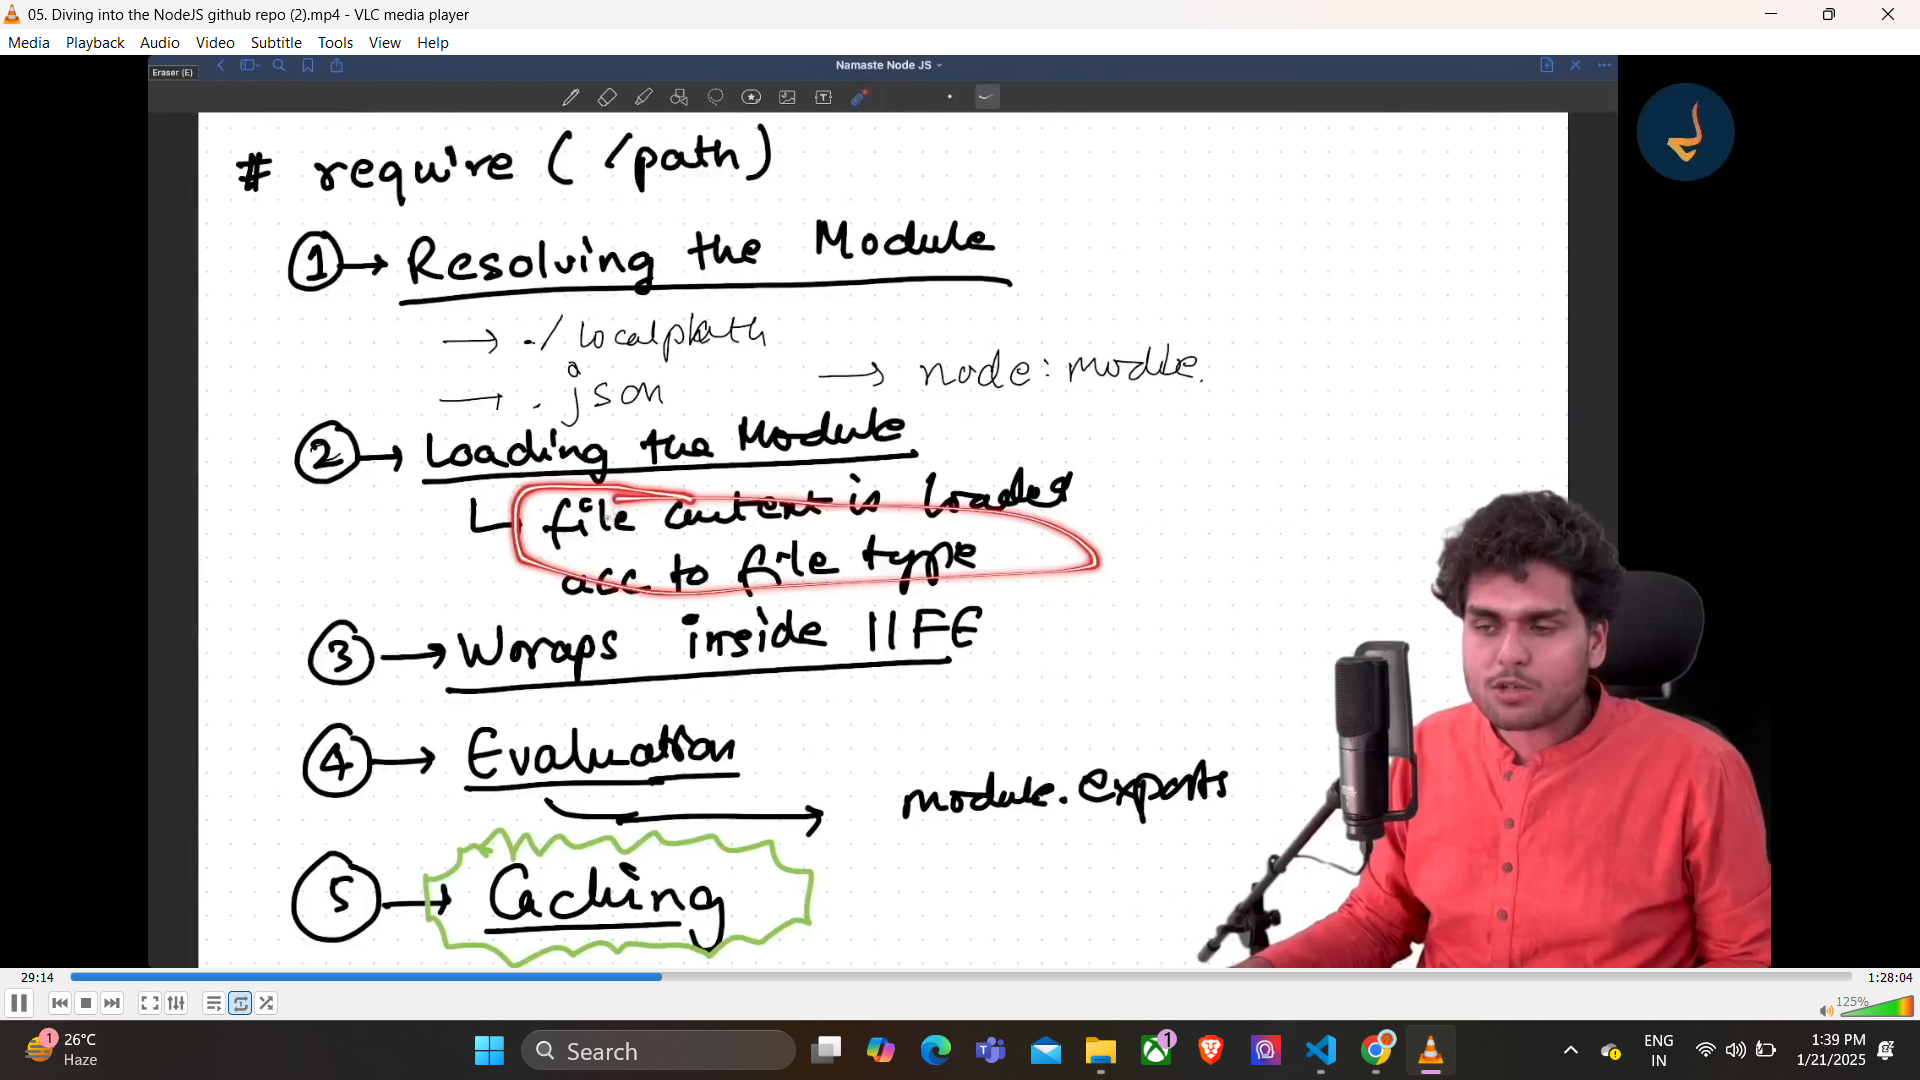 05. Diving into the NodeJS github repo (2).mp4 - VLC media player
Media Playback Audio Video Subtitle Tools View Help
Eraser (E)
Namaste Node JS
# require ( /path)
1 → Resolving the Module
→ ./localpath
→ .json → node:module.
2 → Loading the Module
file content is loaded
acc to file type
3 → Wraps inside IIFE
4 → Evaluation
module.exports
5 → Caching
29:14
1:28:04
125%
1
26°C
Haze
Search
1
ENG
IN
1:39 PM
1/21/2025